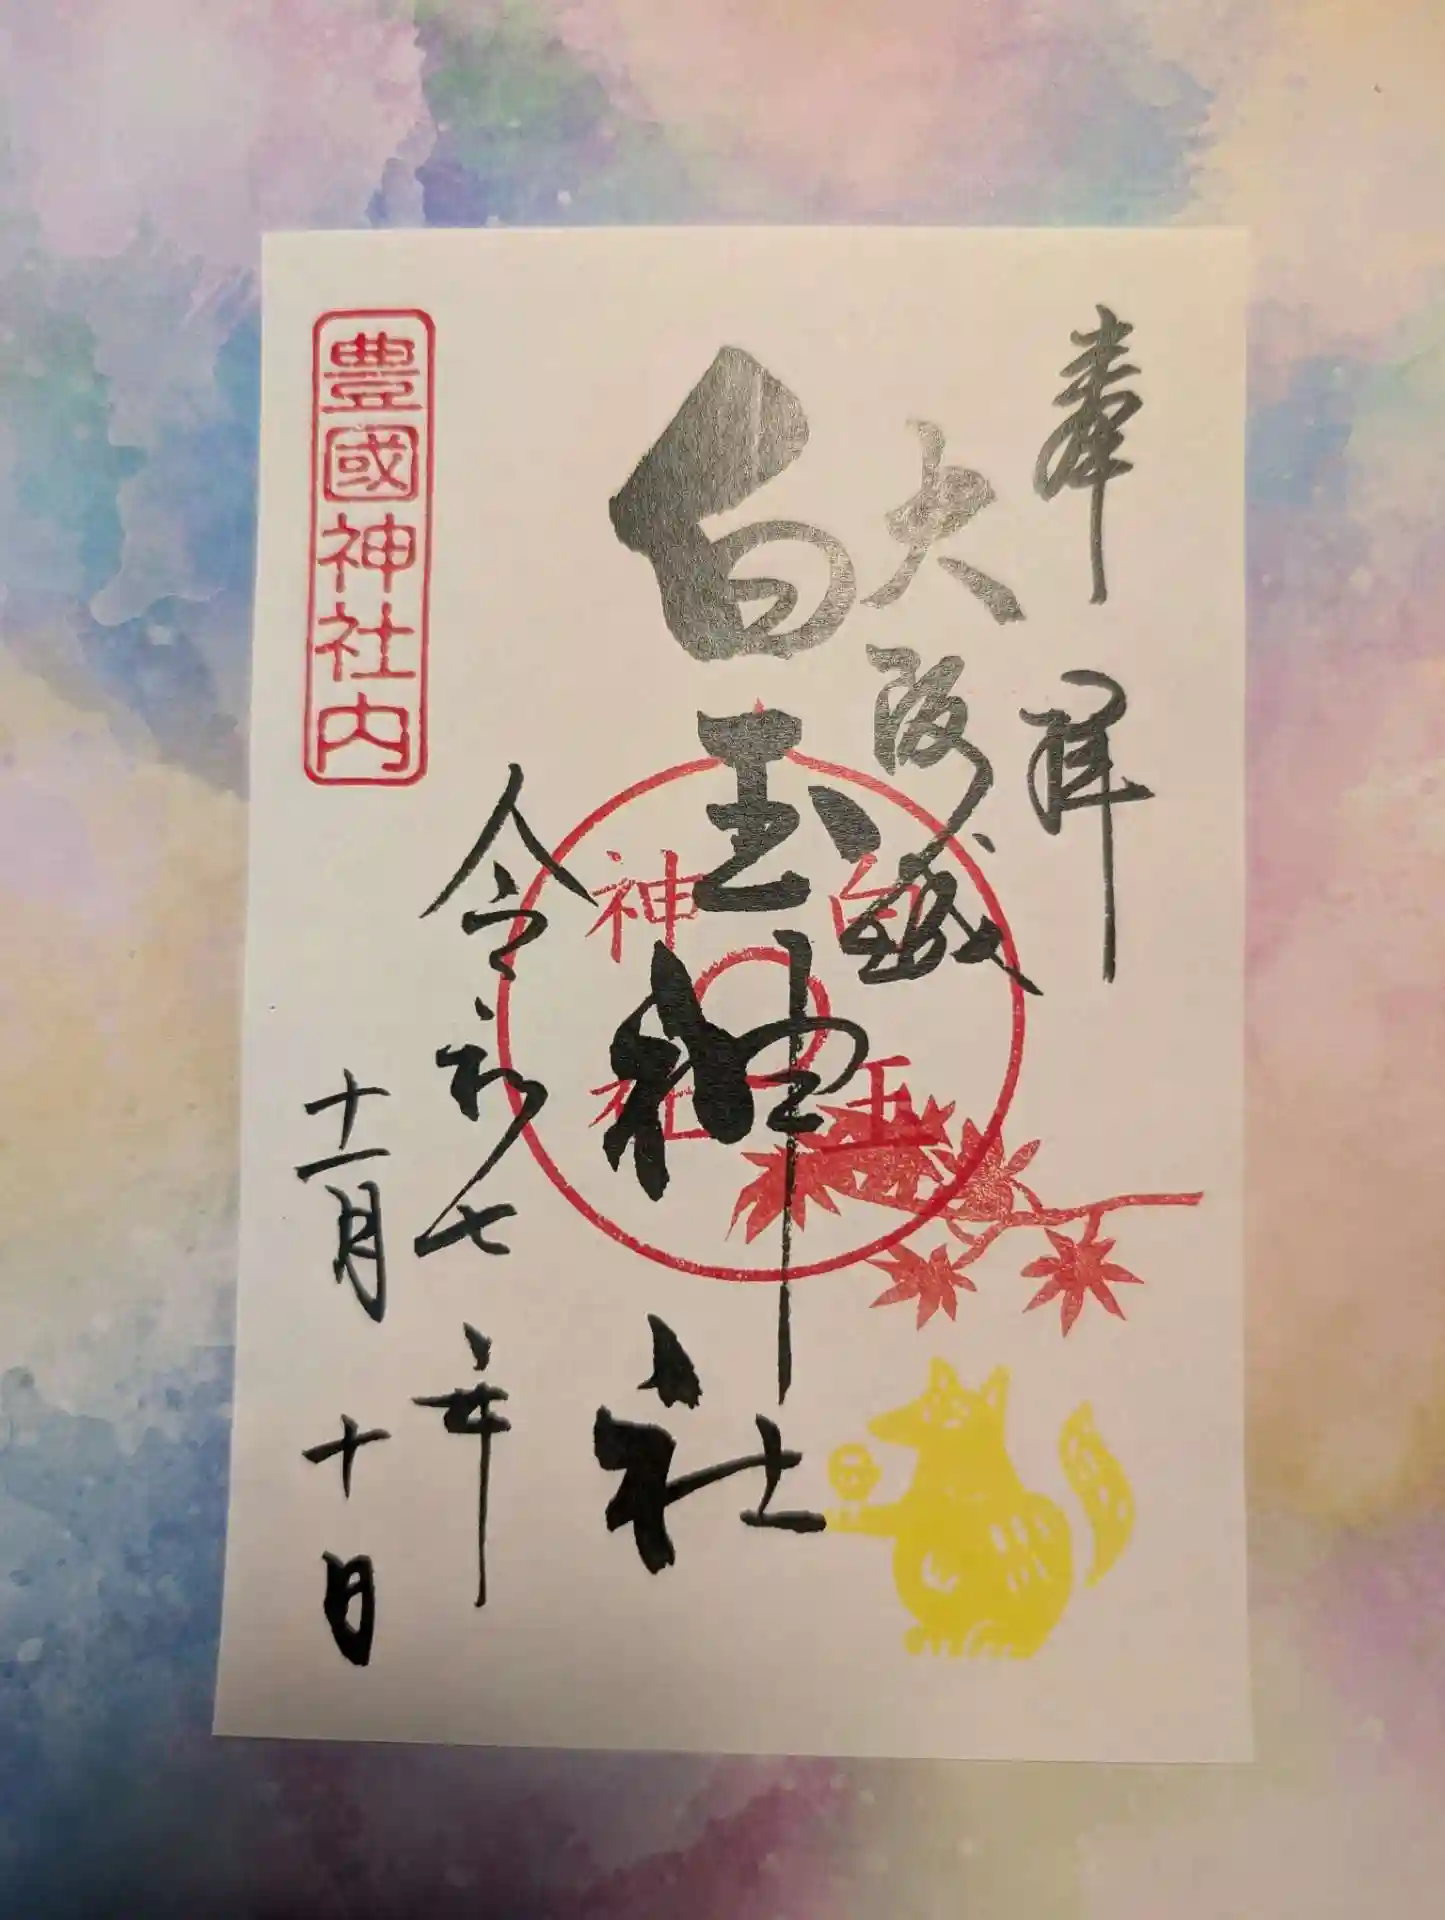 奉拝
大阪城
白玉神社
白玉
神社
令和七年
十一月十日
豊國神社内